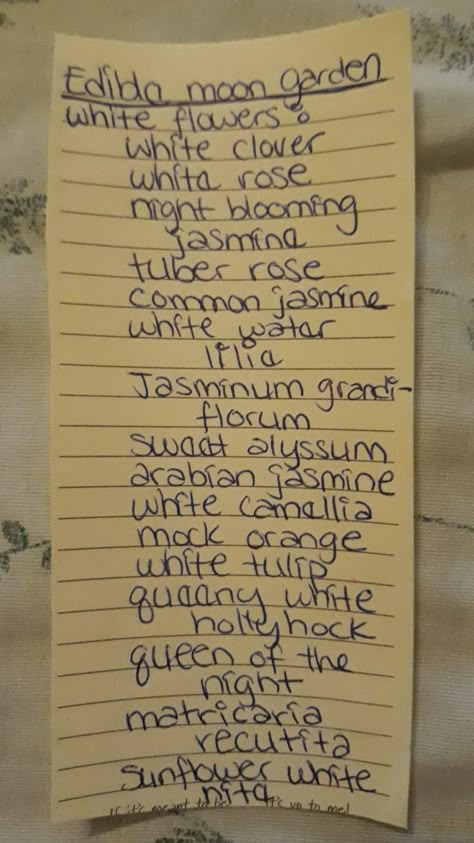 Edibla moon garden
white flowers:
white clover
whita rose
night blooming
jasmina
tuber rose
common jasmine
white watar
lilia
Jasminum grandi-
florum
swaat alyssum
arabian jasmine
white camallia
mock orange
white tulip
quaany white
hollyhock
queen of the
night
matricaria
recutita
sunflower white
nita
If it's meant to be, it's up to me!